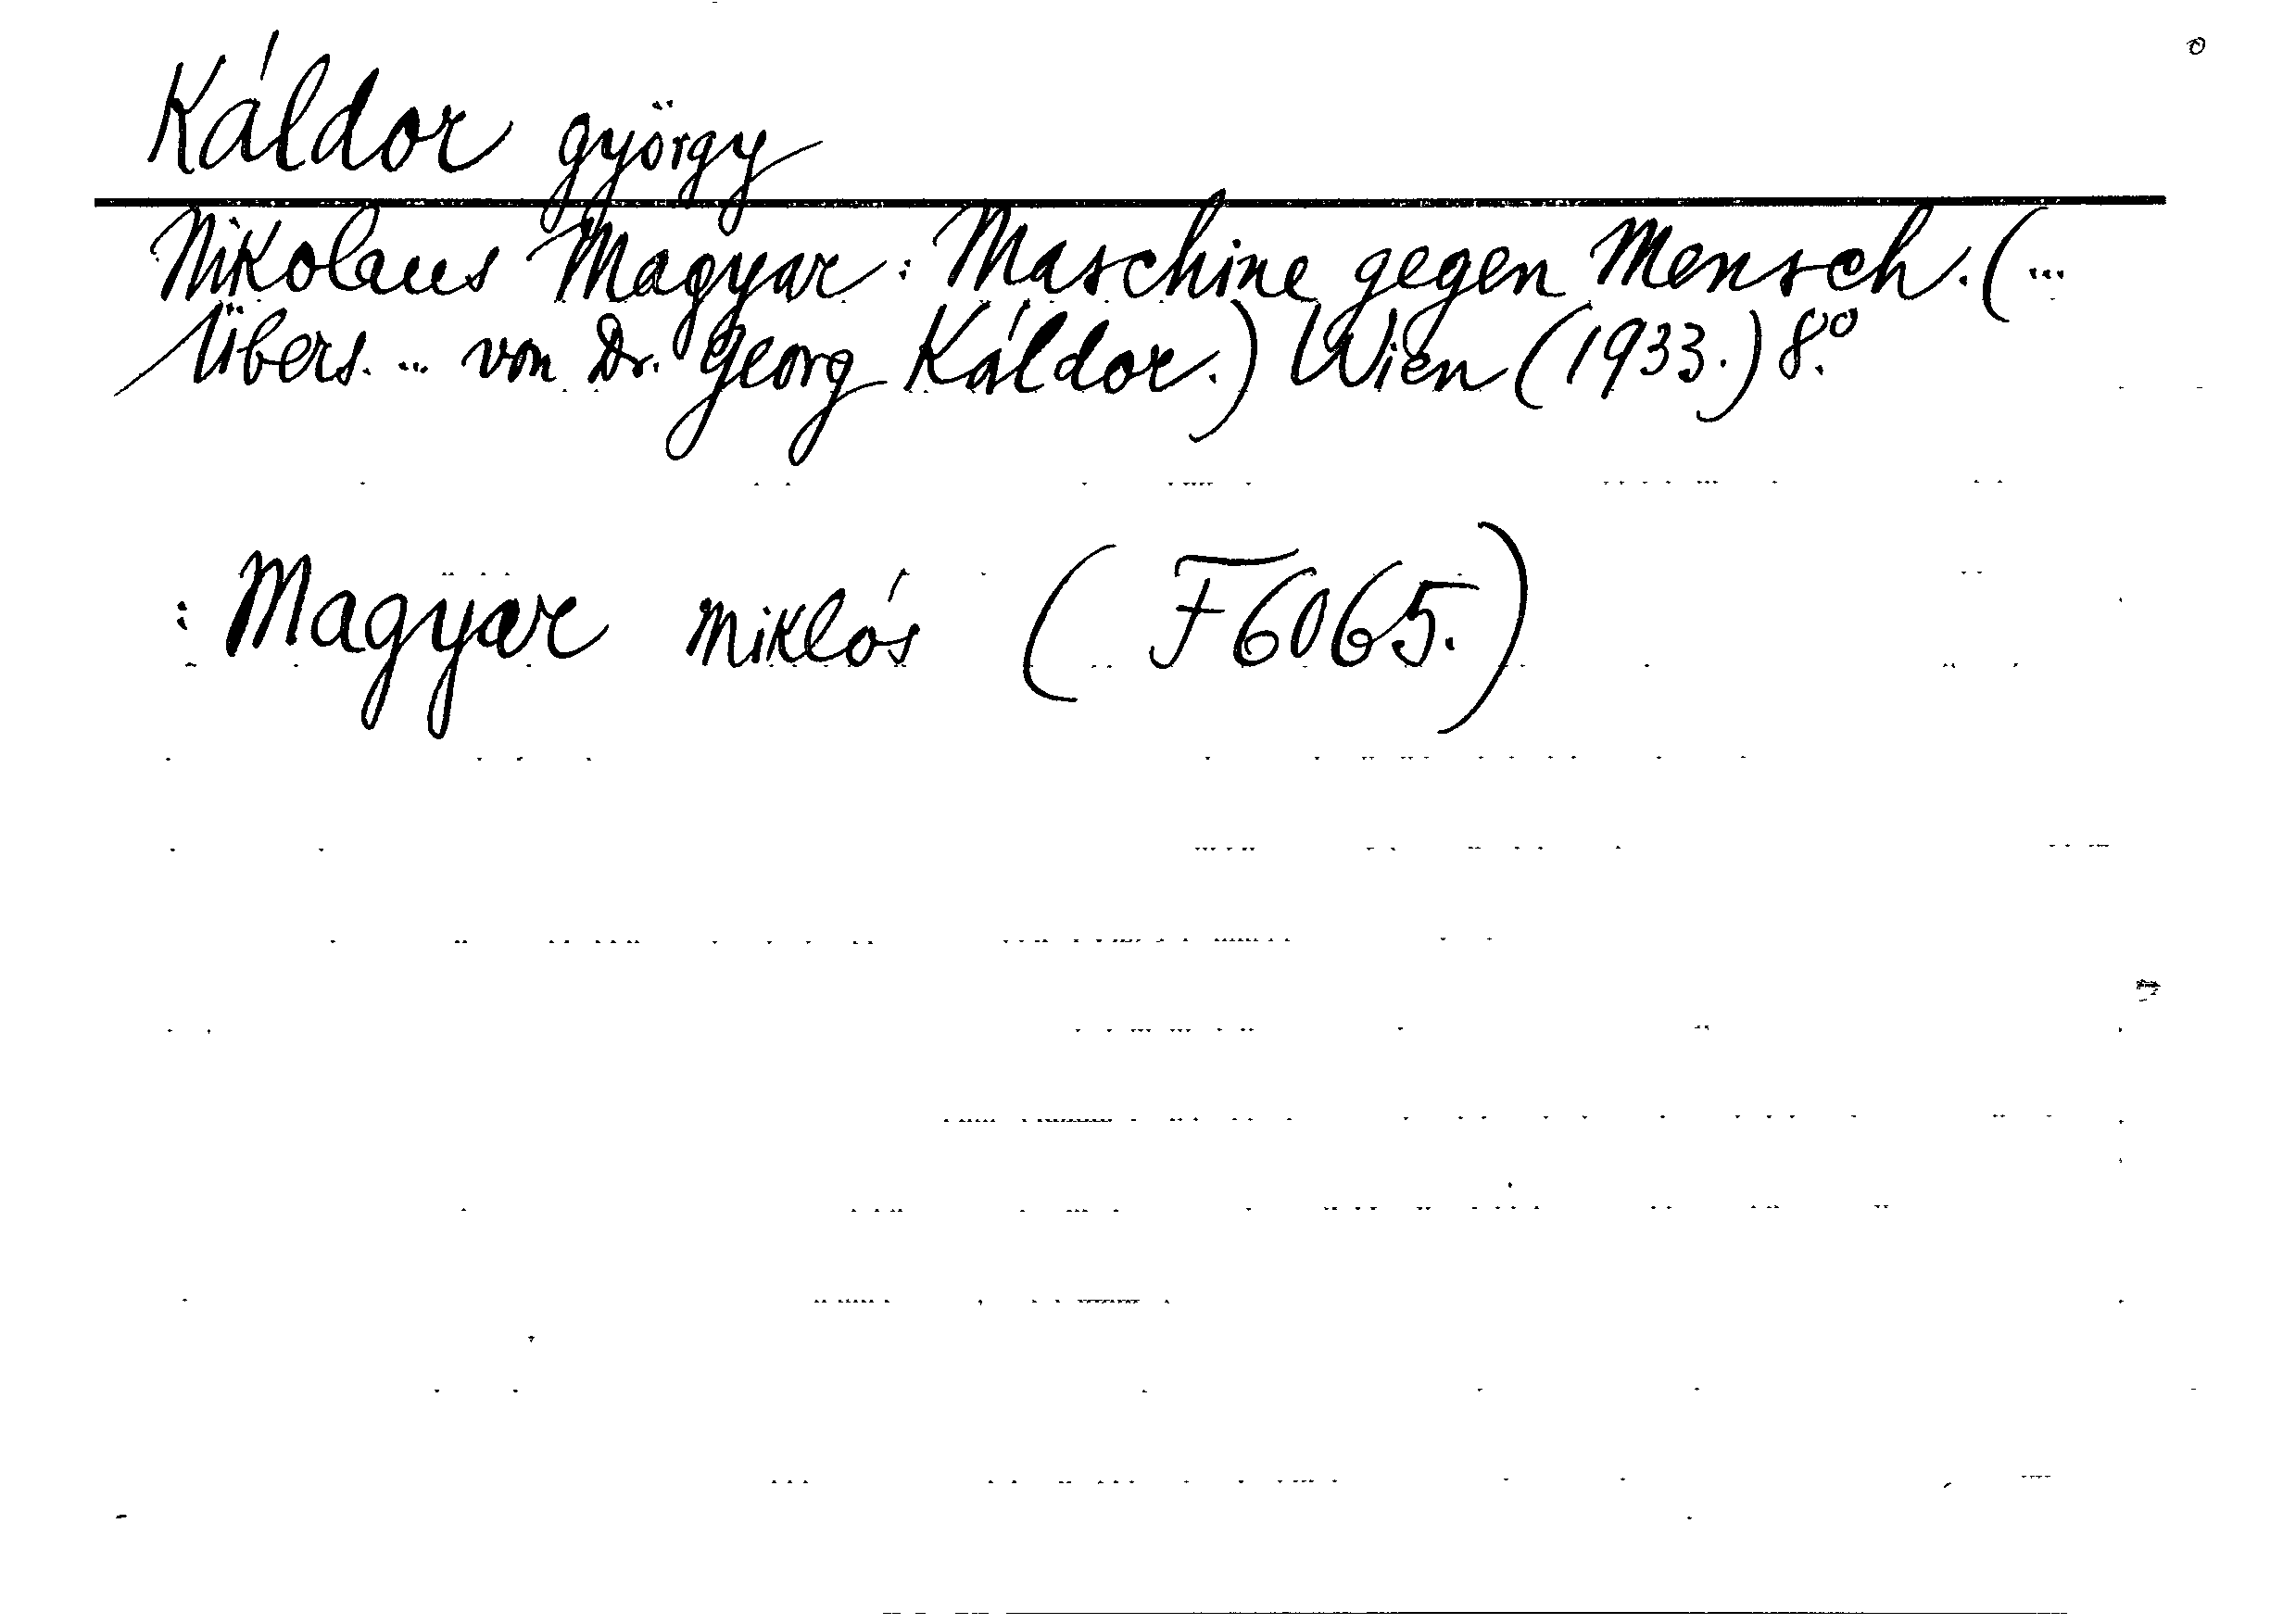 Káldor György
Nikolaus Magyar: Maschine gegen Mensch. (...
Übers. ... von Dr. Georg Káldor.) Wien (1933.) 8.°
: Magyar Miklós ( F6065.)